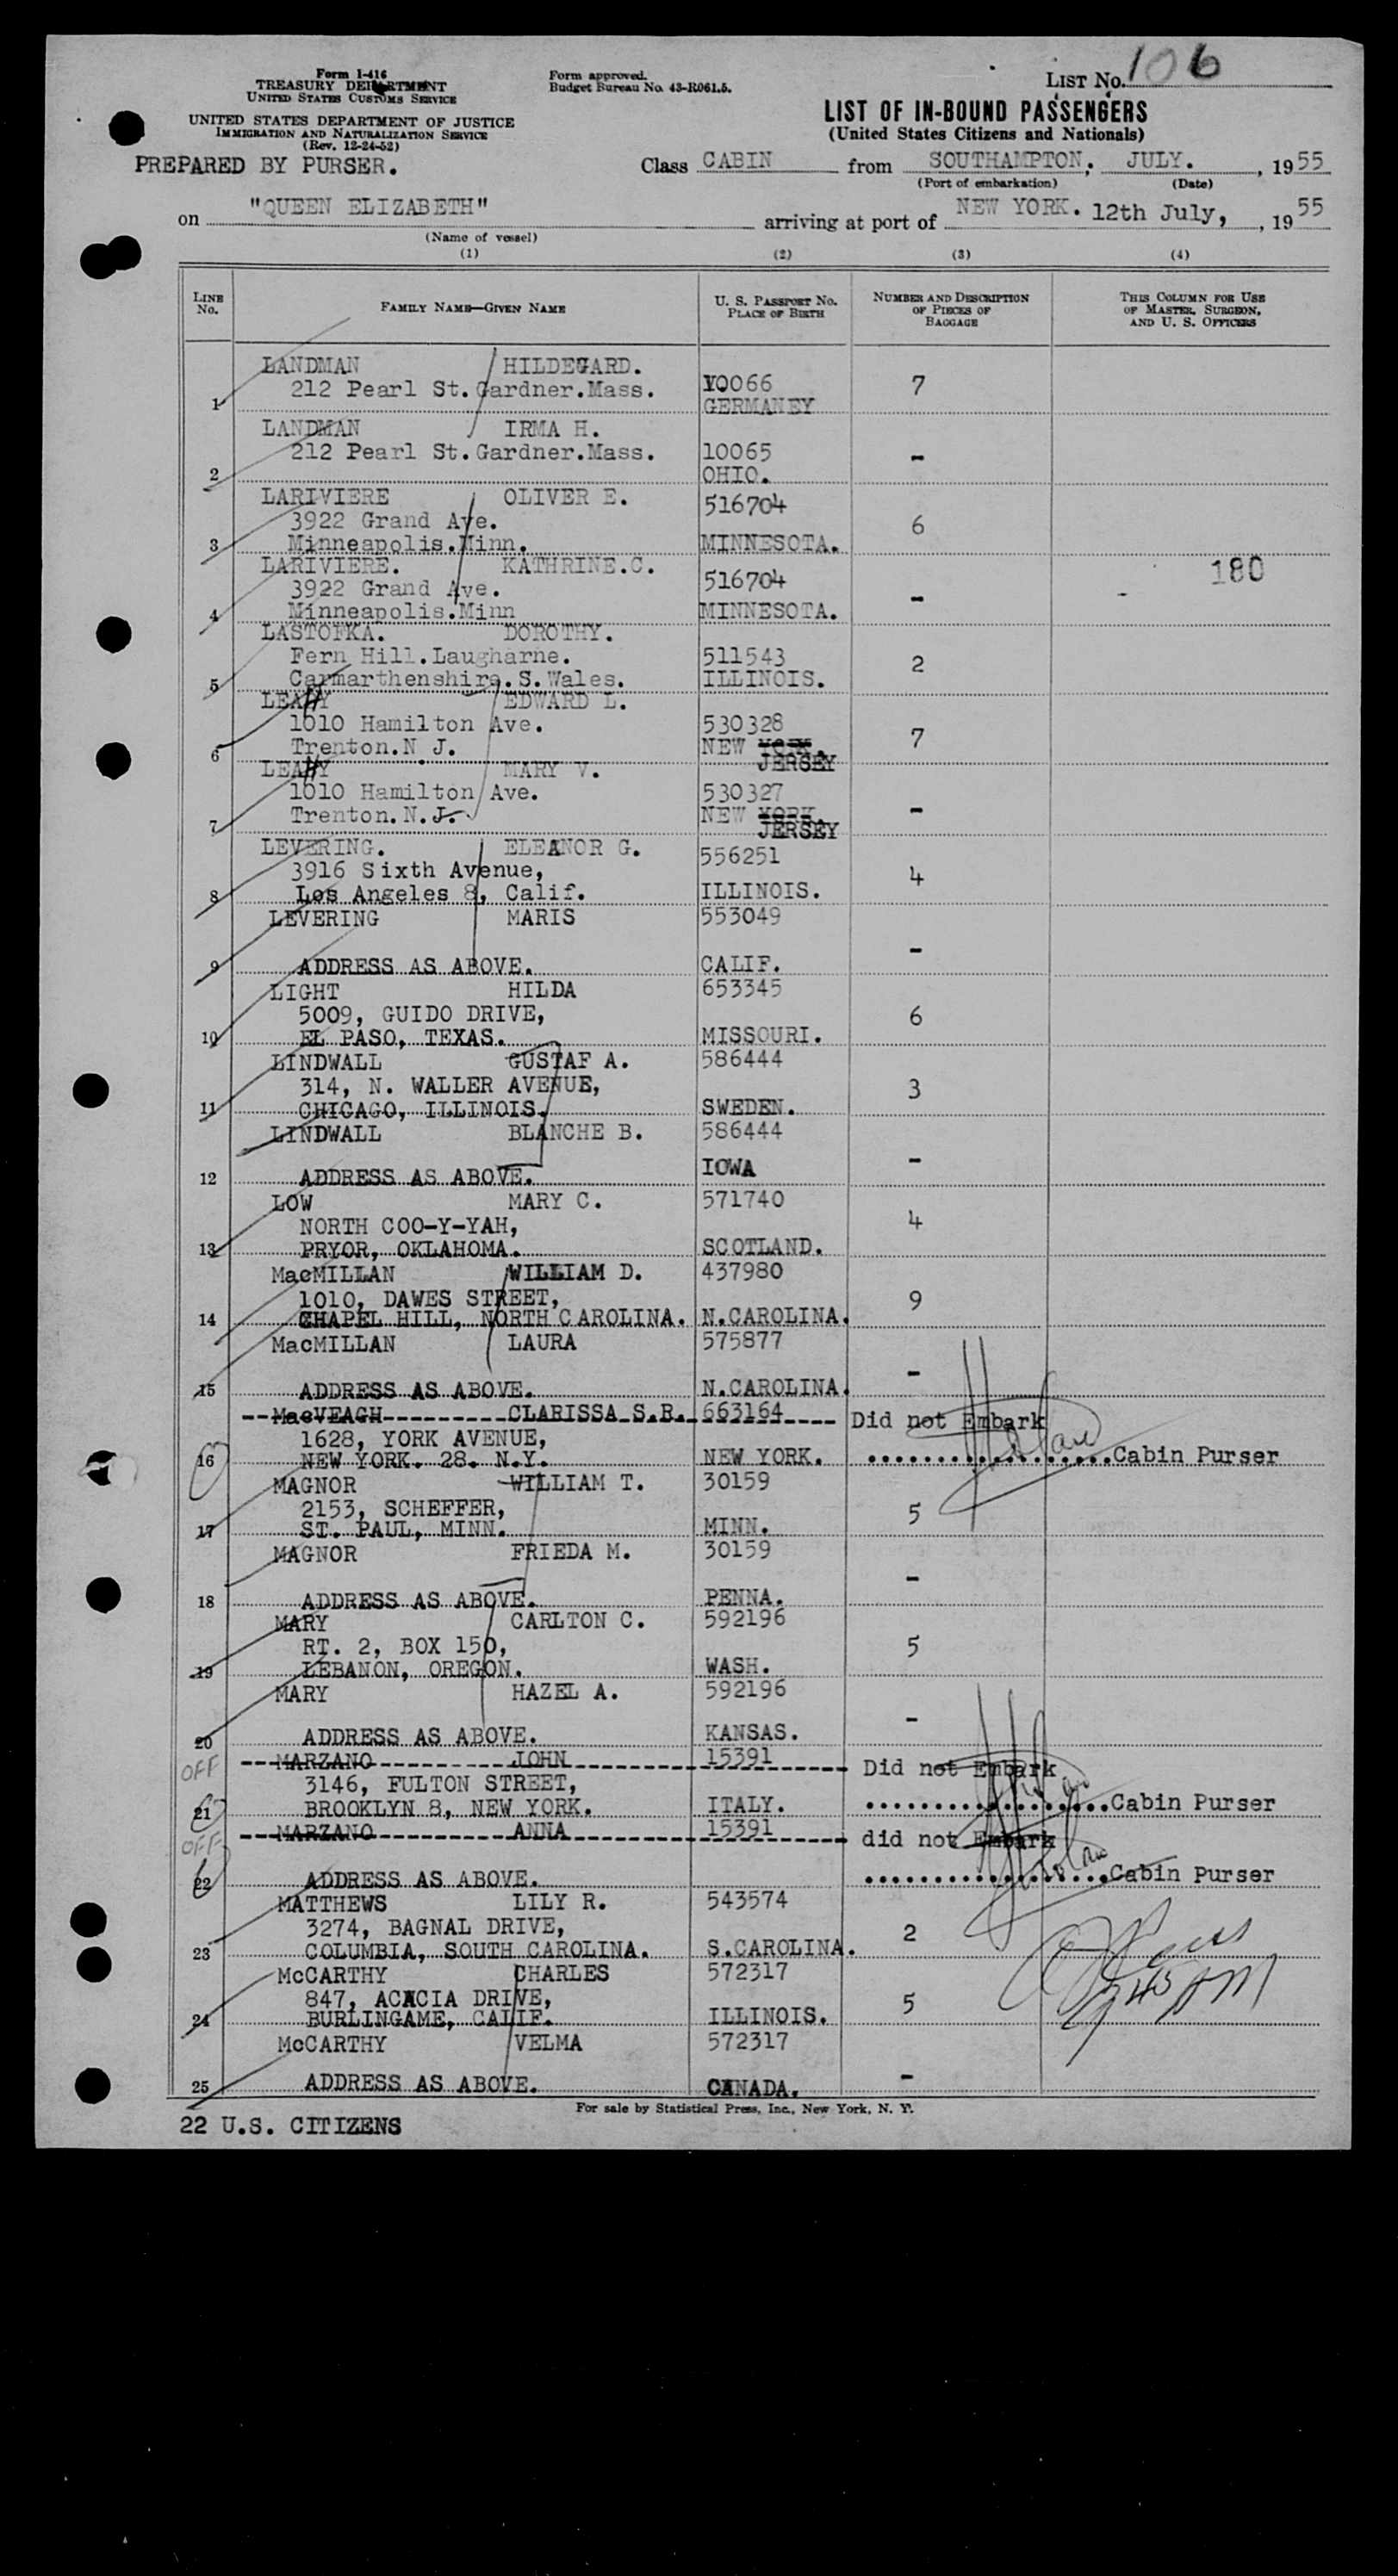 Form I-416
TREASURY DEPARTMENT
UNITED STATES CUSTOMS SERVICE
UNITED STATES DEPARTMENT OF JUSTICE
IMMIGRATION AND NATURALIZATION SERVICE
(Rev. 12-24-52)
PREPARED BY PURSER.
Form approved.
Budget Bureau No. 43-R061.5.
LIST No. 106
LIST OF IN-BOUND PASSENGERS
(United States Citizens and Nationals)
Class CABIN from SOUTHAMPTON, JULY. , 1955
(Port of embarkation) (Date)
on "QUEEN ELIZABETH" arriving at port of NEW YORK. 12th July, , 1955
(Name of vessel)
(1) (2) (3) (4)
LINE No. FAMILY NAME—GIVEN NAME U. S. PASSPORT No. PLACE OF BIRTH NUMBER AND DESCRIPTION OF PIECES OF BAGGAGE THIS COLUMN FOR USE OF MASTER, SURGEON, AND U. S. OFFICERS
LANDMAN HILDEGARD.
212 Pearl St.Gardner.Mass. 10066 7
1 GERMANEY
LANDMAN IRMA H.
212 Pearl St.Gardner.Mass. 10065 -
2 OHIO.
LARIVIERE OLIVER E. 516704
3922 Grand Ave. 6
3 Minneapolis.Minn. MINNESOTA.
LARIVIERE. KATHRINE.C. 516704 180
3922 Grand Ave. -
4 Minneapolis.Minn MINNESOTA.
LASTOFKA. DOROTHY.
Fern Hill.Laugharne. 511543 2
5 Carmarthenshire.S.Wales. ILLINOIS.
LEAHY EDWARD L.
1010 Hamilton Ave. 530328 7
6 Trenton.N J. NEW YORK. JERSEY
LEAHY MARY V.
1010 Hamilton Ave. 530327 -
7 Trenton.N.J. NEW YORK. JERSEY
LEVERING. ELEANOR G. 556251
3916 Sixth Avenue, 4
8 Los Angeles 8, Calif. ILLINOIS.
LEVERING MARIS 553049
-
9 ADDRESS AS ABOVE. CALIF.
LIGHT HILDA 653345
5009, GUIDO DRIVE, 6
10 EL PASO, TEXAS. MISSOURI.
LINDWALL GUSTAF A. 586444
314, N. WALLER AVENUE, 3
11 CHICAGO, ILLINOIS. SWEDEN.
LINDWALL BLANCHE B. 586444
-
12 ADDRESS AS ABOVE. IOWA
LOW MARY C. 571740
NORTH COO-Y-YAH, 4
13 PRYOR, OKLAHOMA. SCOTLAND.
MacMILLAN WILLIAM D. 437980
1010, DAWES STREET, 9
14 CHAPEL HILL, NORTH CAROLINA. N.CAROLINA.
MacMILLAN LAURA 575877
-
15 ADDRESS AS ABOVE. N.CAROLINA.
--MacVEAGH----------CLARISSA S.R. 663164---- Did not Embark
1628, YORK AVENUE,
16 NEW YORK. 28. N.Y. NEW YORK. ..................Cabin Purser
MAGNOR WILLIAM T. 30159
2153, SCHEFFER, 5
17 ST. PAUL, MINN. MINN.
MAGNOR FRIEDA M. 30159
-
18 ADDRESS AS ABOVE. PENNA.
MARY CARLTON C. 592196
RT. 2, BOX 150, 5
19 LEBANON, OREGON. WASH.
MARY HAZEL A. 592196
-
20 ADDRESS AS ABOVE. KANSAS.
OFF --MARZANO-----------JOHN 15391------- Did not Embark
3146, FULTON STREET,
21 BROOKLYN 8, NEW YORK. ITALY. ..................Cabin Purser
OFF ---MARZANO-----------ANNA 15391------- did not Embark
22 ADDRESS AS ABOVE. ..................Cabin Purser
MATTHEWS LILY R. 543574
3274, BAGNAL DRIVE, 2
23 COLUMBIA, SOUTH CAROLINA. S.CAROLINA.
McCARTHY CHARLES 572317
847, ACACIA DRIVE, 5
24 BURLINGAME, CALIF. ILLINOIS.
McCARTHY VELMA 572317
-
25 ADDRESS AS ABOVE. CANADA.
For sale by Statistical Press, Inc., New York, N. Y.
22 U.S. CITIZENS